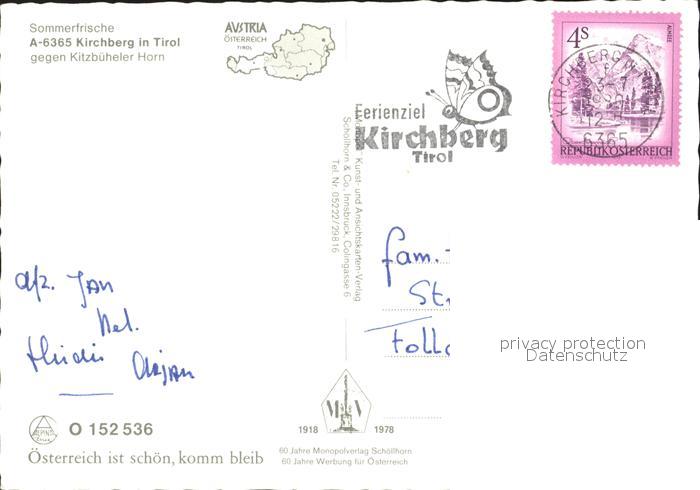 Sommerfrische
A-6365 Kirchberg in Tirol
gegen Kitzbüheler Horn
AUSTRIA
ÖSTERREICH
TIROL
Ferienziel
Kirchberg
Tirol
4S
ALMSEE
KIRCHBERG
6365
REPUBLIK ÖSTERREICH
Kunst- und Ansichtskarten-Verlag
Schöllhorn & Co., Innsbruck, Colingasse 6
Tel. Nr. 05222/29816
fam.
St
afz. JAN
Nel.
Arjan
privacy protection
Datenschutz
M V
1918 1978
ALPINA
O 152 536
Österreich ist schön, komm bleib
60 Jahre Monopolverlag Schöllhorn
60 Jahre Werbung für Österreich